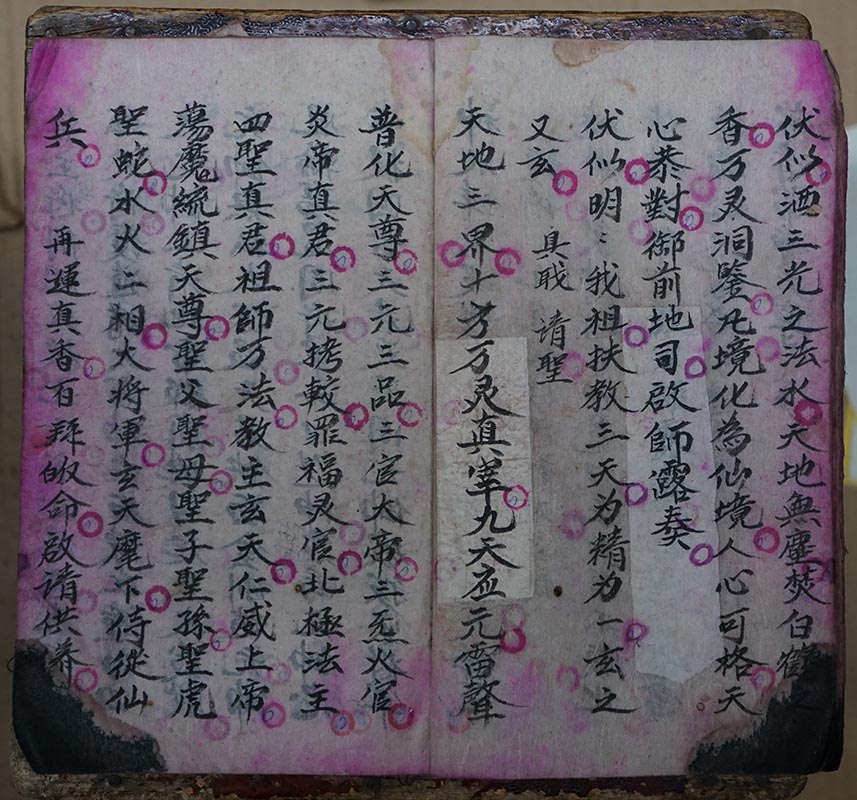 伏似洒三光之法水天地無塵焚白鶴之
香万灵洞鑒凡境化為仙境人心可格天
心恭對御前地司啟師露奏
伏似明〻我祖扶教三天为精为一玄之
又玄 具職 请聖
天地三界十方万灵真宰九天应元雷聲
普化天尊三元三品三官大帝三炁火官
炎帝真君三元拷較罪福灵官北極法主
四聖真君祖師万法教主玄天仁威上帝
蕩魔統鎮天尊聖父聖母聖子聖孫聖虎
聖蛇水火二相大将軍玄天麾下侍從仙
兵 再運真香百拜皈命啟请供养